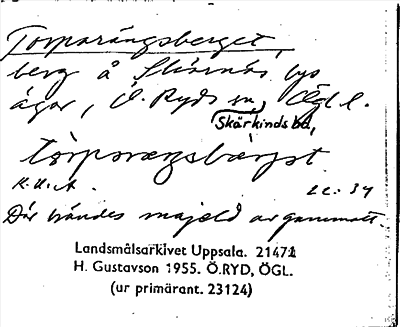 Torparängsberget,
berg å Skörnäs bys
ägor, Ö. Ryds sn, Ögl.
Skärkinds hd,
torparængsbærget.
K.U.A. 22: 34
Där tändes majeld av gammalt
Landsmålsarkivet Uppsala. 21471
H. Gustavson 1955. Ö.RYD, ÖGL.
(ur primärant. 23124)